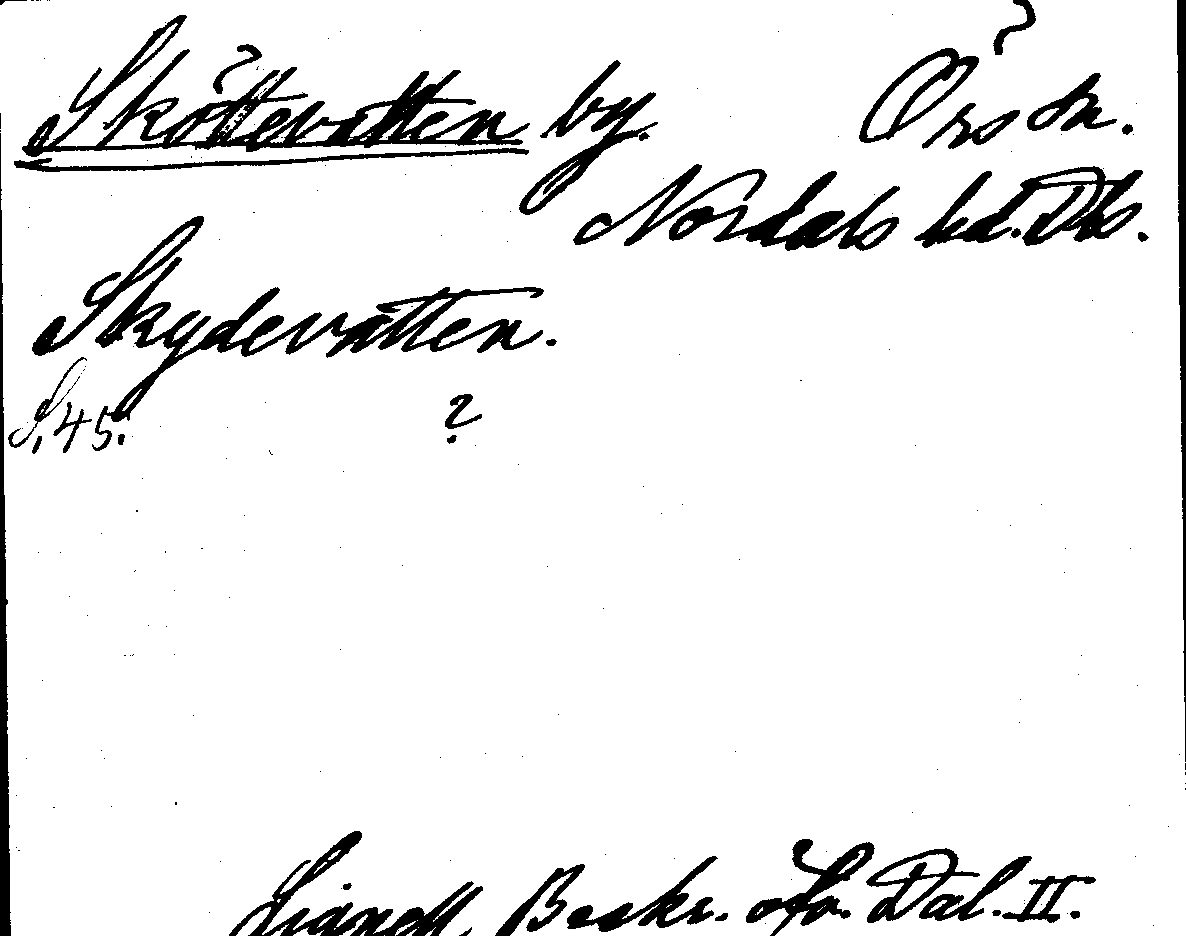 Sköttevatten by. Örs sn.
Nordals hd. Dls.
Skydevatten.
S. 45. ?
Lignell, Beskr. öfv. Dal. II.